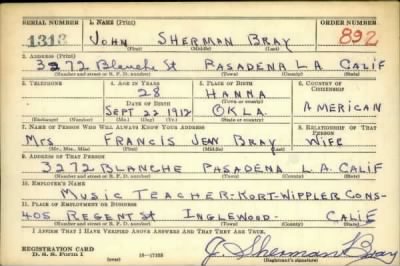 SERIAL NUMBER 1. NAME (Print) ORDER NUMBER
1313 JOHN SHERMAN BRAY 892
(First) (Middle) (Last)
2. ADDRESS (Print)
3272 Blanche St PASADENA L.A. CALIF
(Number and street or R. F. D. number) (Town) (County) (State)
3. TELEPHONE 4. AGE IN YEARS 5. PLACE OF BIRTH 6. COUNTRY OF CITIZENSHIP
28 HANNA
DATE OF BIRTH (Town or county)
SEPT 22 1912 OKLA. AMERICAN
(Exchange) (Number) (Mo.) (Day) (Yr.) (State or country)
7. NAME OF PERSON WHO WILL ALWAYS KNOW YOUR ADDRESS 8. RELATIONSHIP OF THAT PERSON
Mrs FRANCIS JEAN BRAY WIFE
(Mr., Mrs., Miss) (First) (Middle) (Last)
9. ADDRESS OF THAT PERSON
3272 BLANCHE PASADENA L.A. CALIF
(Number and street or R. F. D. number) (Town) (County) (State)
10. EMPLOYER'S NAME
MUSIC TEACHER-KORT-WIPPLER CONS-
11. PLACE OF EMPLOYMENT OR BUSINESS
405 REGENT St INGLEWOOD- CALIF
(Number and street or R. F. D. number) (Town) (County) (State)
I AFFIRM THAT I HAVE VERIFIED ABOVE ANSWERS AND THAT THEY ARE TRUE.
REGISTRATION CARD
D. S. S. Form 1 16-17105 J. Sherman Bray
(Registrant's signature)